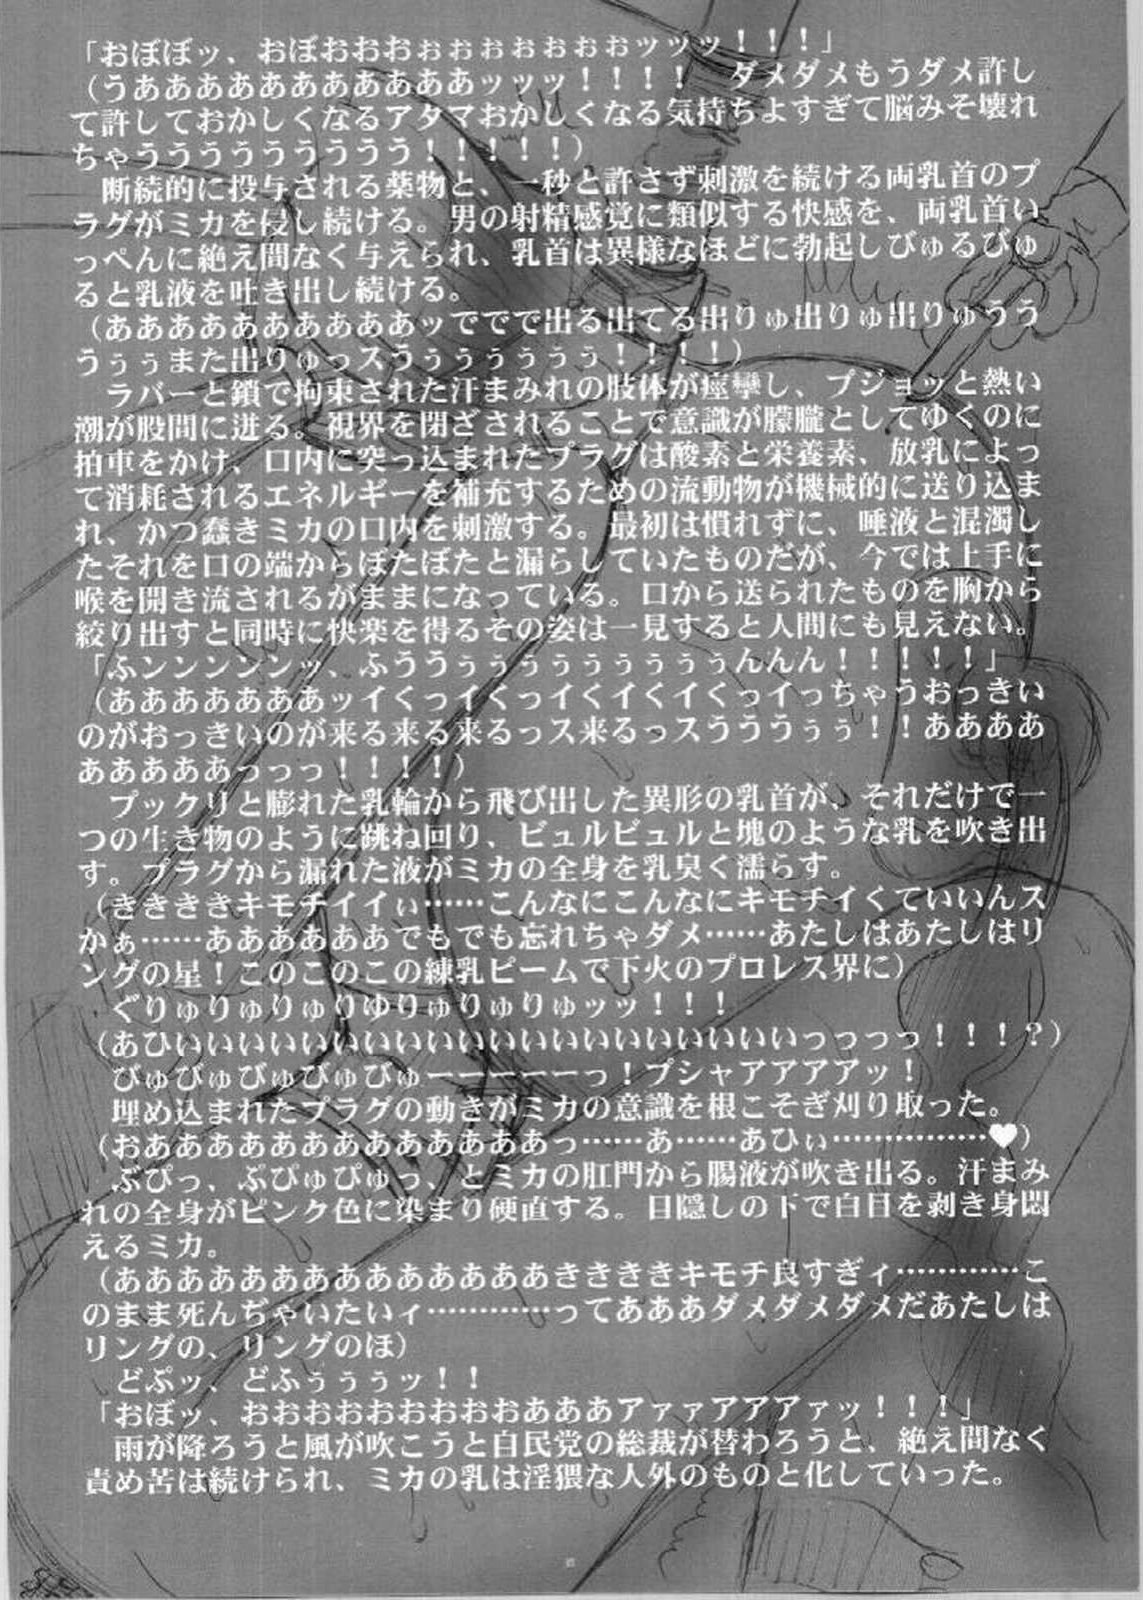 「おぼぼッ、おぼおおおぉぉぉぉぉぉぉッッッ！！！」
（うああああああああああああッッッ！！！！　ダメダメもうダメ許し
て許しておかしくなるアタマおかしくなる気持ちよすぎて脳みそ壊れ
ちゃううううううううう！！！！！）
断続的に投与される薬物と、一秒と許さず刺激を続ける両乳首のプ
ラグがミカを侵し続ける。男の射精感覚に類似する快感を、両乳首い
っぺんに絶え間なく与えられ、乳首は異様なほどに勃起しびゅるびゅ
ると乳液を吐き出し続ける。
（ああああああああああッででで出る出てる出りゅ出りゅ出りゅうう
うぅぅまた出りゅっスうぅぅぅぅぅぅ！！！！）
ラバーと鎖で拘束された汗まみれの肢体が痙攣し、プジョッと熱い
潮が股間に迸る。視界を閉ざされることで意識が朦朧としてゆくのに
拍車をかけ、口内に突っ込まれたプラグは酸素と栄養素、放乳によっ
て消耗されるエネルギーを補充するための流動物が機械的に送り込ま
れ、かつ蠢きミカの口内を刺激する。最初は慣れずに、唾液と混濁し
たそれを口の端からぼたぼたと漏らしていたものだが、今では上手に
喉を開き流されるがままになっている。口から送られたものを胸から
絞り出すと同時に快楽を得るその姿は一見すると人間にも見えない。
「ふンンンンンッ、ふううぅぅぅぅぅぅぅぅぅんんん！！！！！」
（あああああああッイくっイくっイくイくイくっイっちゃうおっきい
のがおっきいのが来る来る来るっス来るっスうううぅぅ！！ああああ
ああああああっっっ！！！！）
プックリと膨れた乳輪から飛び出した異形の乳首が、それだけで一
つの生き物のように跳ね回り、ビュルビュルと塊のような乳を吹き出
す。プラグから漏れた液がミカの全身を乳臭く濡らす。
（きききキモチイイぃ……こんなにこんなにキモチイくていいんス
かぁ……ああああああでもでも忘れちゃダメ……あたしはあたしはリ
ングの星！このこのこの練乳ビームで下火のプロレス界に）
ぐりゅりゅりゅりゆりゅりゅりゅッッ！！！
（あひぃいいいいいいいいいいいいいいいいいいいいっっっっ！！！？）
びゅびゅびゅびゅびゅーーーーーっ！プシャアアアアッ！
埋め込まれたプラグの動きがミカの意識を根こそぎ刈り取った。
（おああああああああああああああっ……あ……あひぃ……………♥）
ぶぴっ、ぷぴゅぴゅっ、とミカの肛門から腸液が吹き出る。汗まみ
れの全身がピンク色に染まり硬直する。目隠しの下で白目を剥き身悶
えるミカ。
（ああああああああああああああききききキモチ良すぎィ…………こ
のまま死んぢゃいたいィ…………ってあああダメダメダメだあたしは
リングの、リングのほ）
どぷッ、どふぅぅぅッ！！
「おぼッ、おおおおおおおおおあああアァァアアアァッ！！！」
雨が降ろうと風が吹こうと自民党の総裁が替わろうと、絶え間なく
責め苦は続けられ、ミカの乳は淫猥な人外のものと化していった。